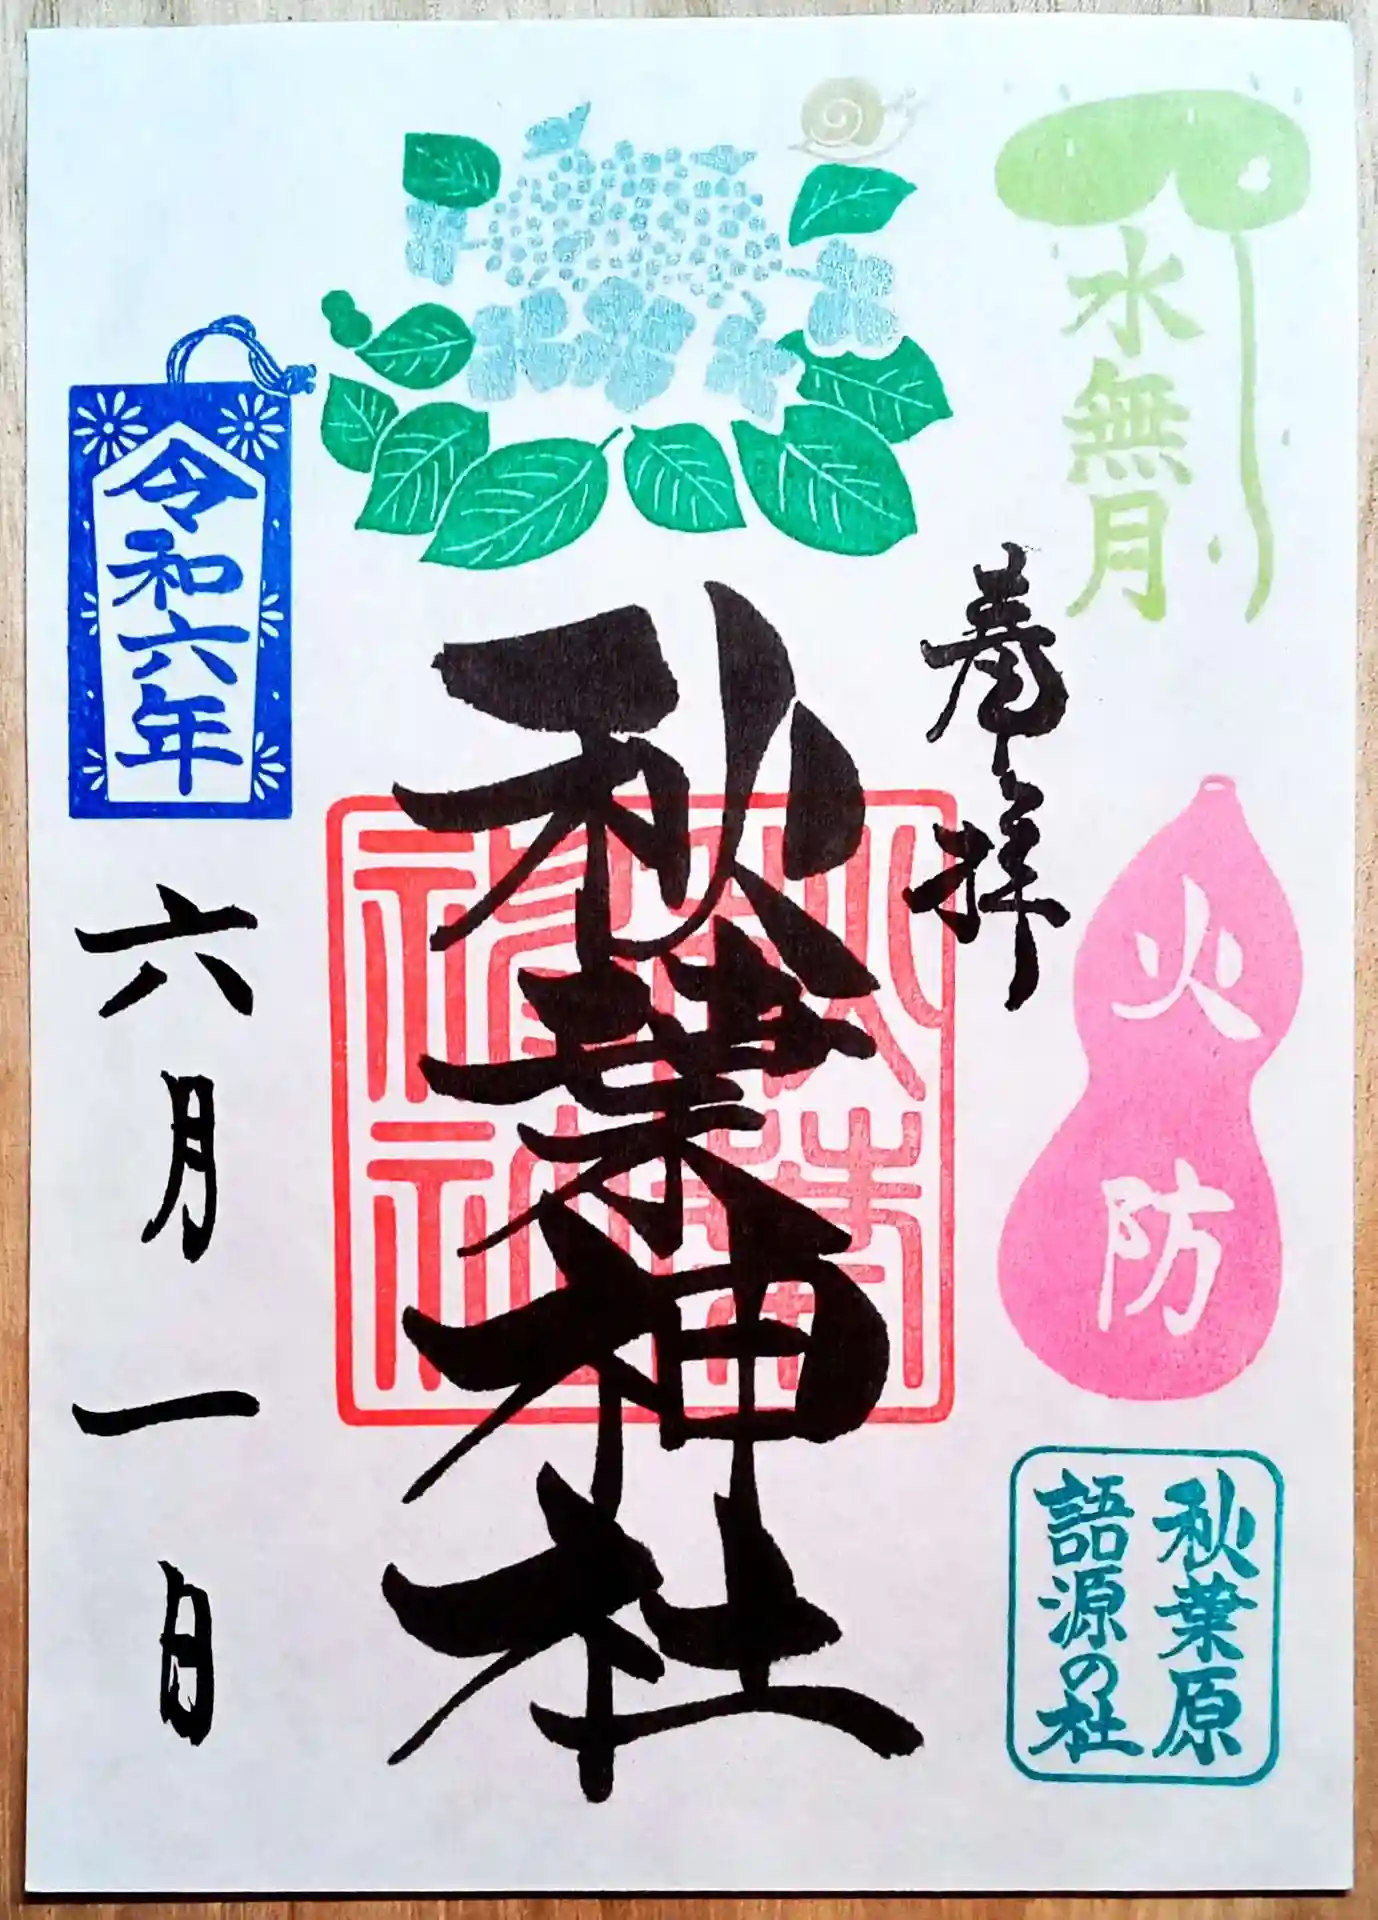 水無月
奉拝
火防
秋葉原
語源の社
秋葉神社
秋葉
神社
令和六年
六月一日